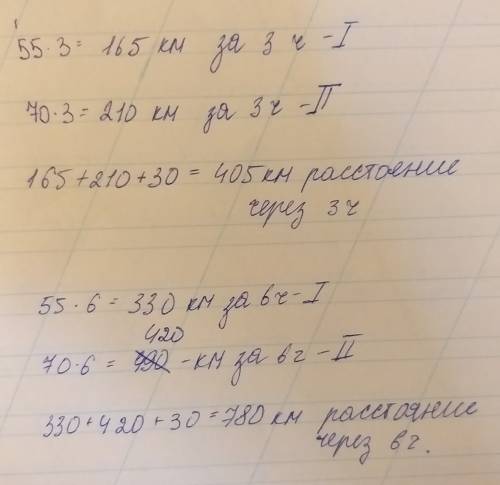 55·3= 165 км за 3 ч -I
70·3= 210 км за 3ч -II
165+210+30 = 405км расстояние
через 3ч
55·6 = 330 км за 6ч-I
420
70·6 = 490 -км за 6ч -II
330+420+30=780 км расстояние
через 6ч.